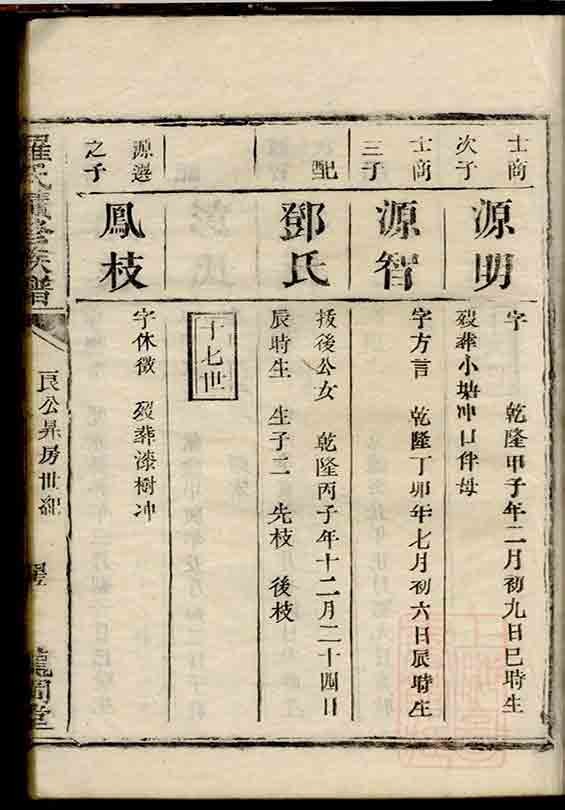 士商
次子
源明
字 乾隆甲子年二月初九日巳時生
歿葬小塘冲口伴母
士商
三子
源智
字方言 乾隆丁卯年七月初六日辰時生
配
鄧氏
拔後公女 乾隆丙子年十二月二十四日
辰時生 生子二 先枝 後枝
十七世
源選
之子
鳳枝
字休徵 歿葬漆樹冲
羅氏續修族譜
良公昇房世紀